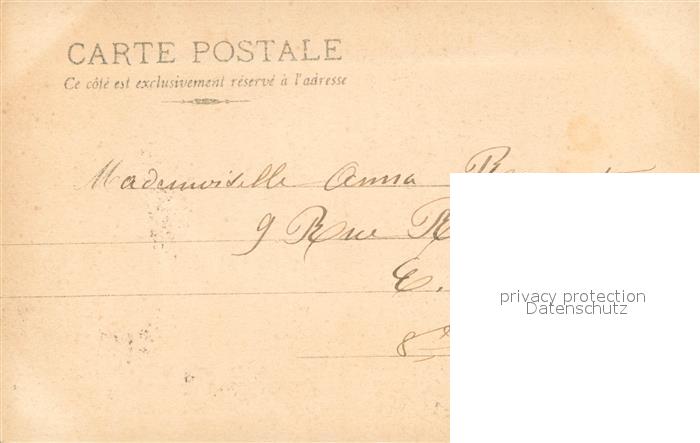 CARTE POSTALE
Ce côté est exclusivement réservé à l'adresse
Mademoiselle Anna
9 Rue
privacy protection
Datenschutz